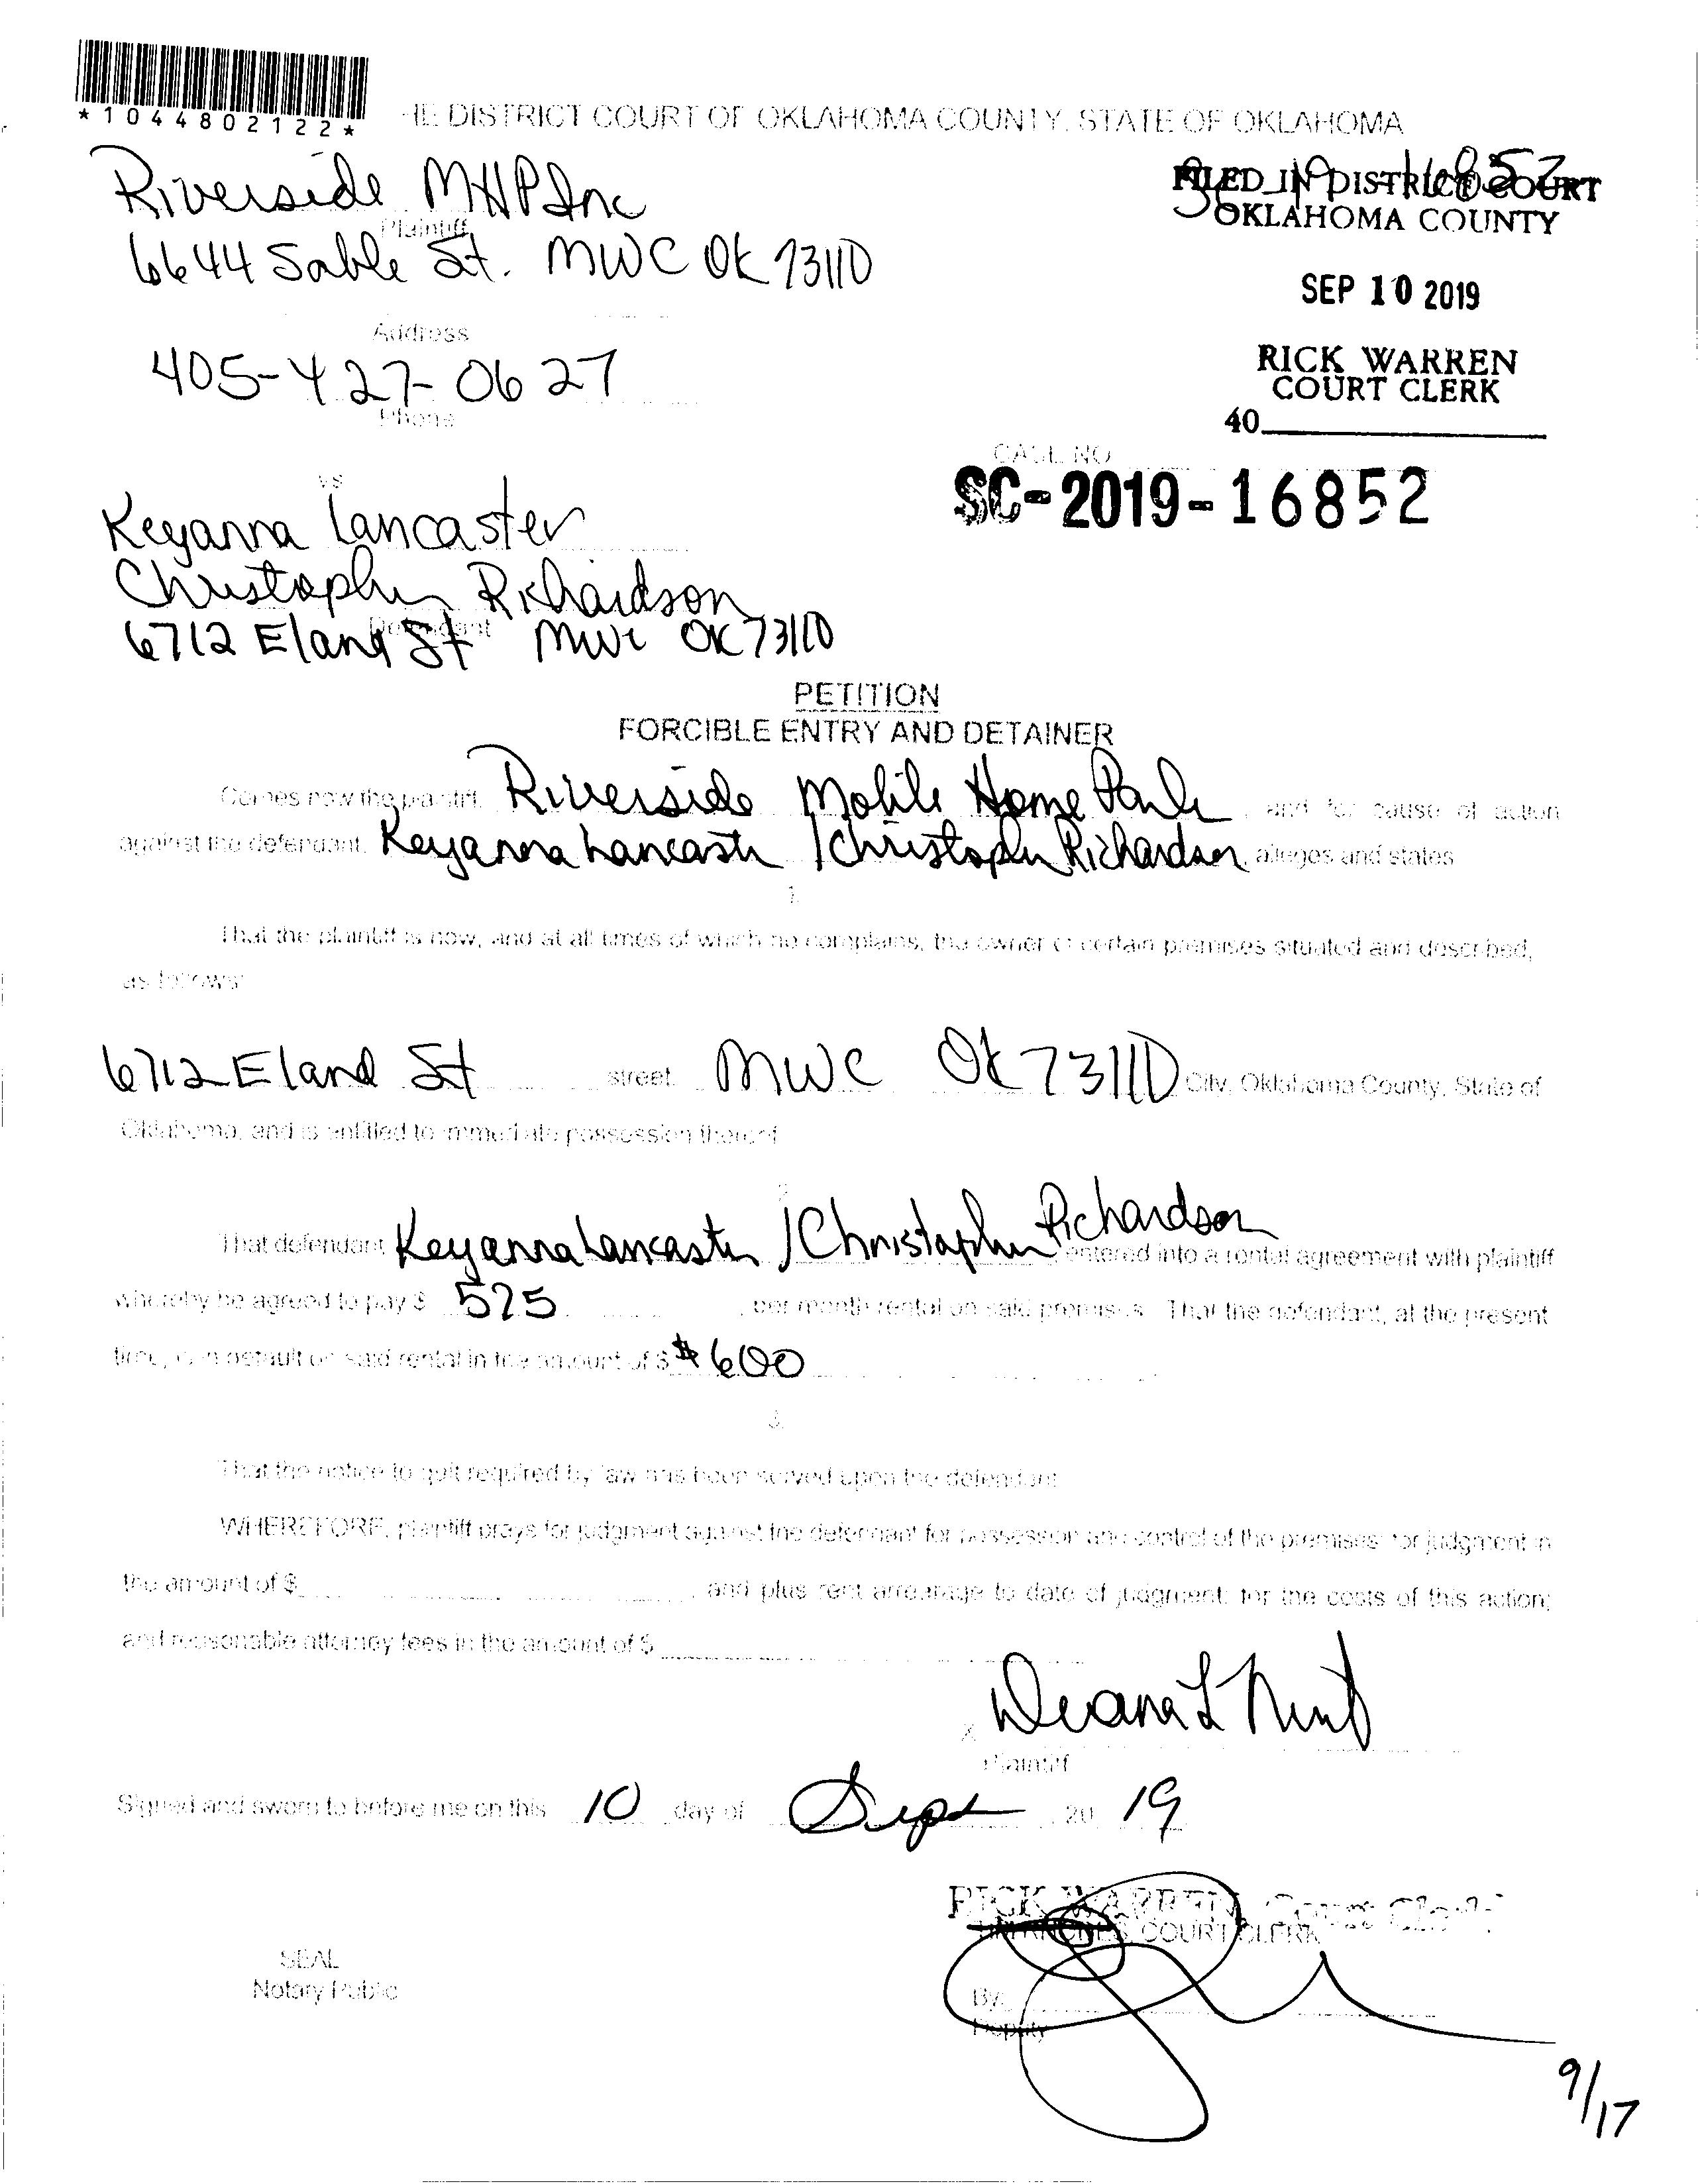 *1044802122*
HE DISTRICT COURT OF OKLAHOMA COUNTY, STATE OF OKLAHOMA
Riverside MHP Inc
Plaintiff
6644 Sable St. MWC OK 73110
Address
405-427-0627
Phone
FILED IN DISTRICT COURT
OKLAHOMA COUNTY
SEP 10 2019
RICK WARREN
COURT CLERK
40
CASE NO
SC-2019-16852
vs
Keyanna Lancaster
Christopher Richardson
Defendant
6712 Eland St MWC OK 73110
PETITION
FORCIBLE ENTRY AND DETAINER
Comes now the plaintiff, Riverside Mobile Home Park, and for cause of action
against the defendant, Keyanna Lancaster / Christopher Richardson, alleges and states
1.
That the plaintiff is now, and at all times of which he complains, the owner of certain premises situated and described,
as follows:
6712 Eland St street, MWC OK 73110 City, Oklahoma County, State of
Oklahoma, and is entitled to immediate possession thereof.
2.
That defendant Keyanna Lancaster / Christopher Richardson entered into a rental agreement with plaintiff
whereby he agreed to pay $ 525 , per month rental on said premises. That the defendant, at the present
time, is in default on said rental in the amount of $ $600
3.
That the notice to quit required by law has been served upon the defendant.
WHEREFORE, plaintiff prays for judgment against the defendant for possession and control of the premises; for judgment in
the amount of $ , and plus rent arrearage to date of judgment; for the costs of this action;
and reasonable attorney fees in the amount of $
X Deana L
Plaintiff
Signed and sworn to before me on this 10 day of Sept , 20 19
RICK WARREN, Court Clerk
COURT CLERK
SEAL
Notary Public
By:
Deputy
9/17